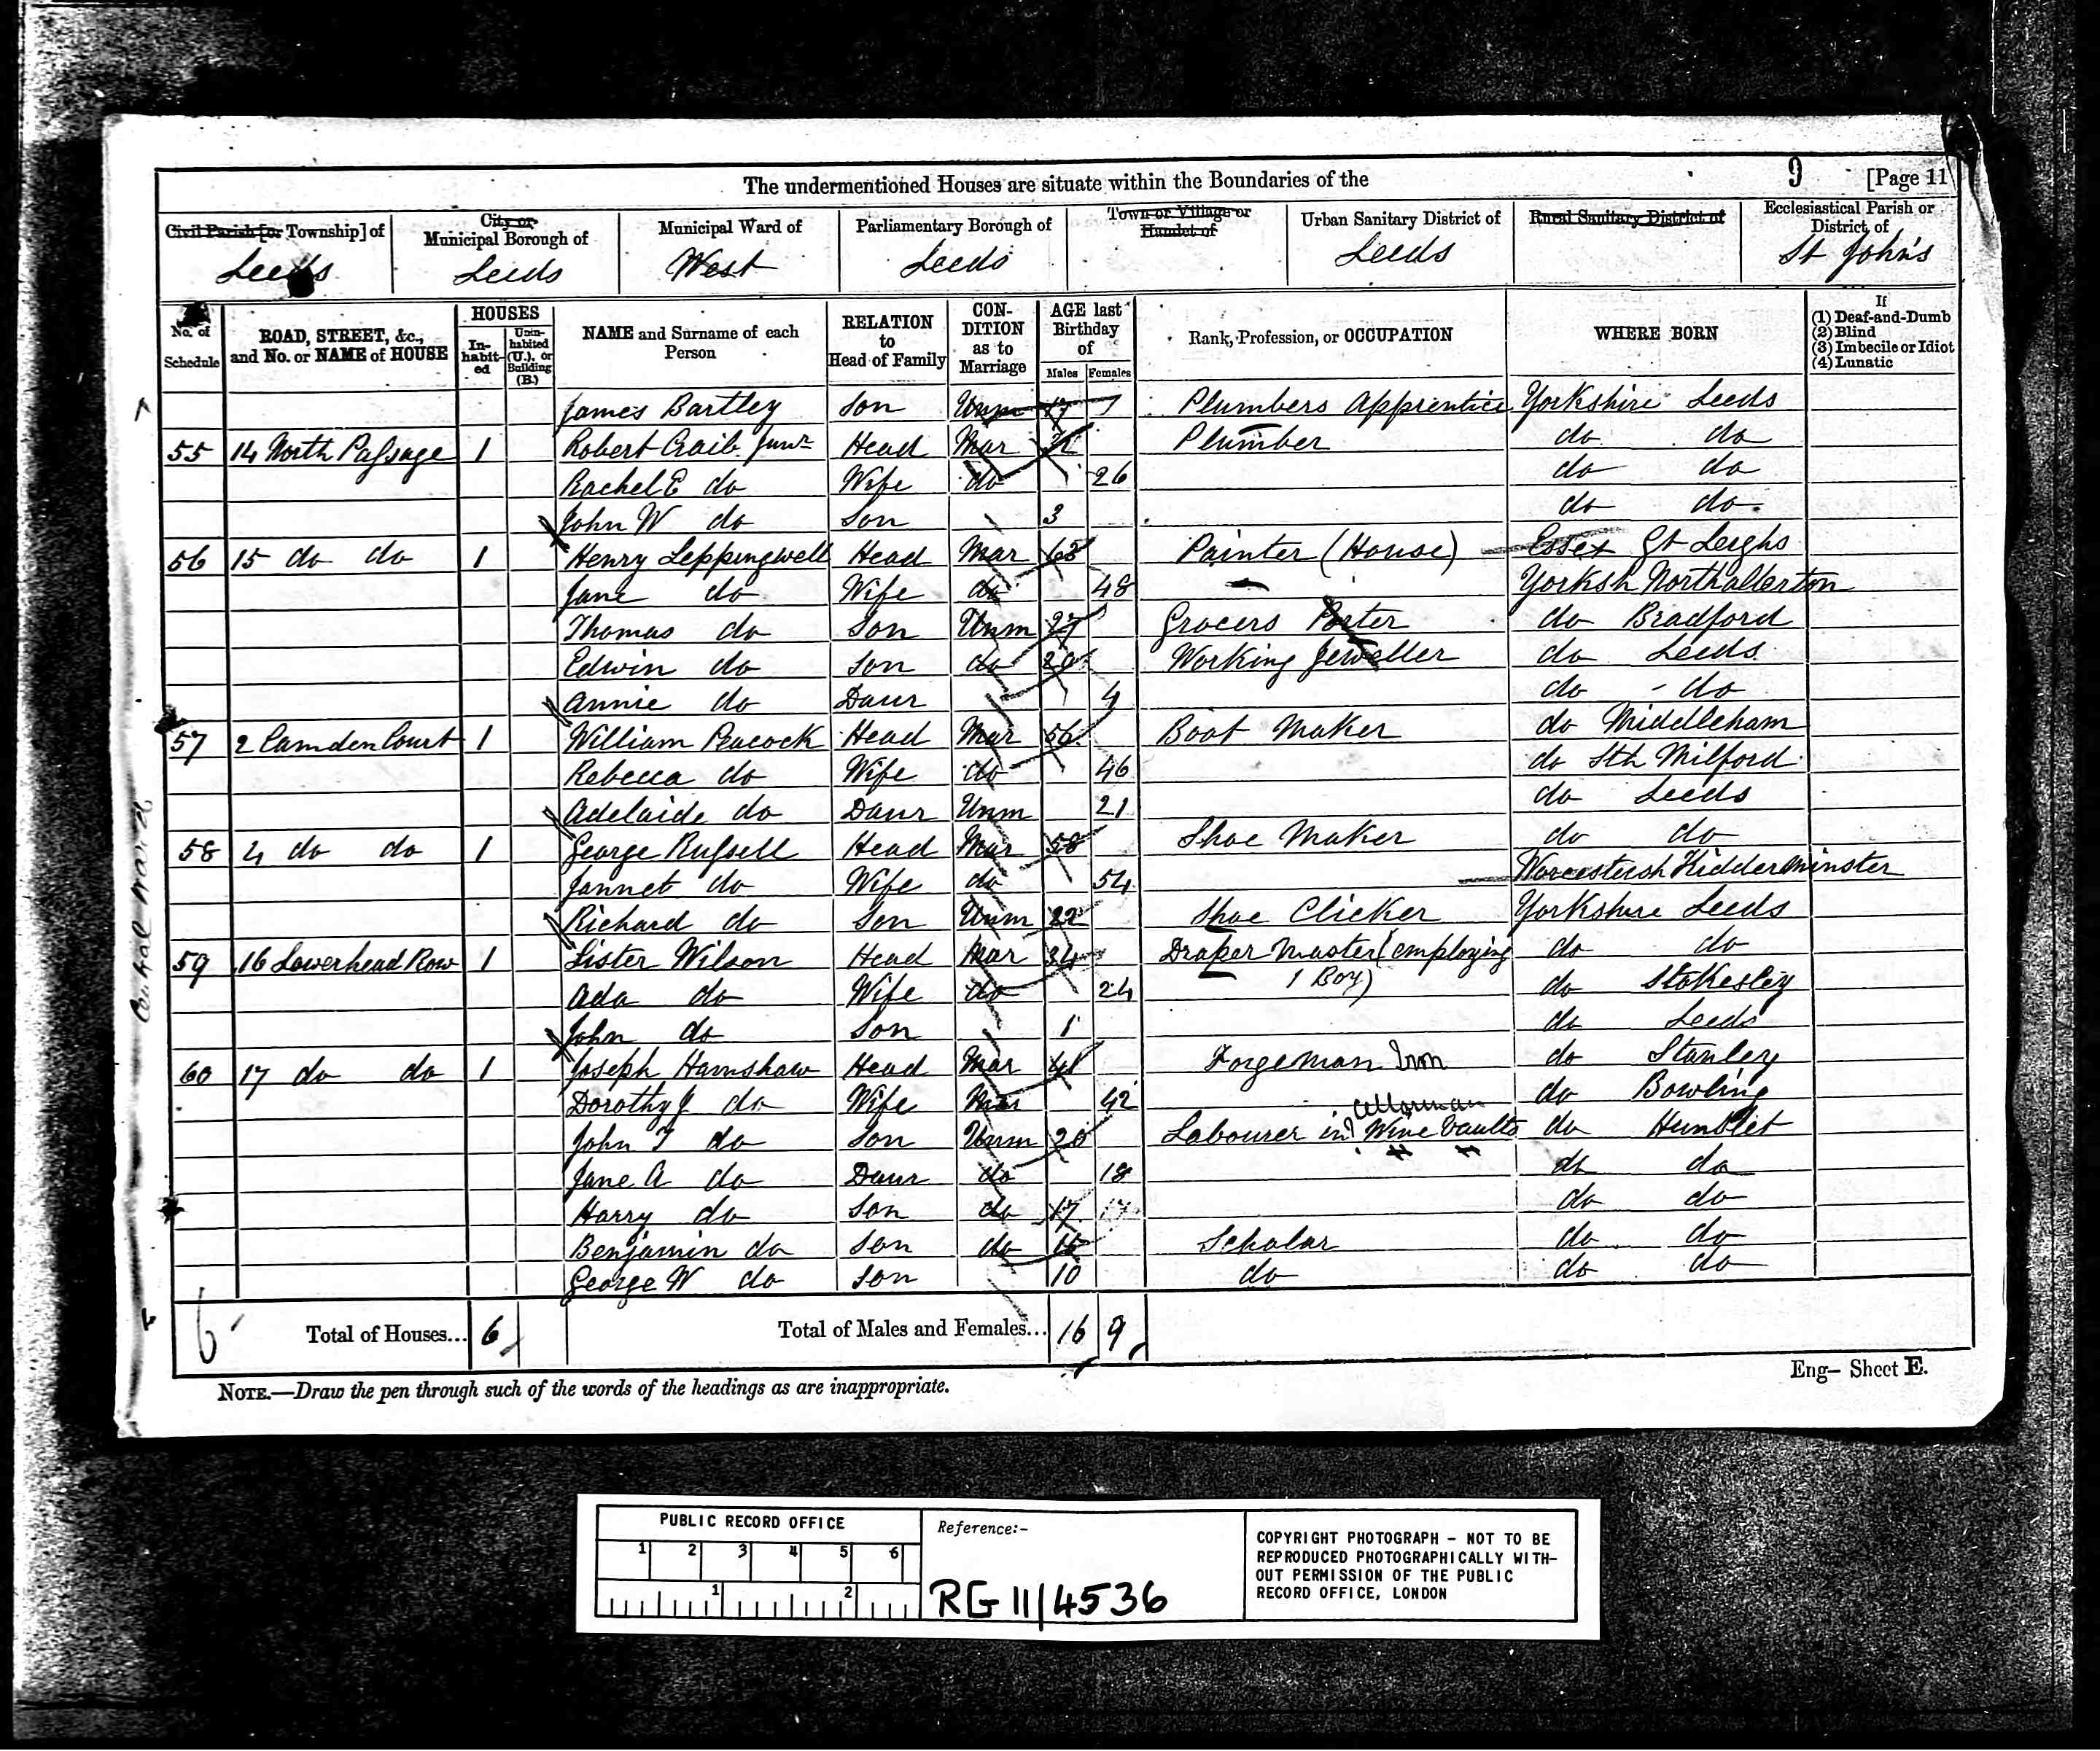 The undermentioned Houses are situate within the Boundaries of the 9 [Page 11
Civil Parish [or Township] of Leeds
City or Municipal Borough of Leeds
Municipal Ward of West
Parliamentary Borough of Leeds
Town or Village or Hamlet of
Urban Sanitary District of Leeds
Rural Sanitary District of
Ecclesiastical Parish or District of St John's
No. of Schedule
ROAD, STREET, &c., and No. or NAME of HOUSE
HOUSES
In-habit-ed
Unin-habited (U.), or Building (B.)
NAME and Surname of each Person
RELATION to Head of Family
CON-DITION as to Marriage
AGE last Birthday of
Males Females
Rank, Profession, or OCCUPATION
WHERE BORN
If
(1) Deaf-and-Dumb
(2) Blind
(3) Imbecile or Idiot
(4) Lunatic
James Bartley Son Unm 17 Plumbers Apprentice Yorkshire Leeds
55 14 North Passage 1 Robert Craib Junr Head Mar Plumber do do
Rachel E do Wife do 26 do do
John W do Son 3 do do
56 15 do do 1 Henry Leppingwell Head Mar 68 Painter (House) Essex Gt Leighs
Jane do Wife do 48 Yorksh Northallerton
Thomas do Son Unm 27 Grocers Porter do Bradford
Edwin do Son do 20 Working Jeweller do Leeds
Annie do Daur 4 do do
57 2 Camden Court 1 William Peacock Head Mar 56 Boot Maker do Middleham
Rebecca do Wife do 46 do Sth Milford
Adelaide do Daur Unm 21 do Leeds
58 4 do do 1 George Russell Head Mar 58 Shoe Maker do do
Jannet do Wife do 54 Worcestersh Kidderminster
Richard do Son Unm 22 Shoe Clicker Yorkshire Leeds
59 16 Lowerhead Row 1 Lister Wilson Head Mar 34 Draper Master (employing do do
Ada do Wife do 24 1 Boy) do Stokesley
John do Son 1 do Leeds
60 17 do do 1 Joseph Hamshaw Head Mar 41 Forgeman Iron do Stanley
Dorothy J do Wife Mar 42 do Bowling
Cellarman
John T do Son Unm 20 Labourer in Wine Vaults do Hunslet
Jane A do Daur do 18 do do
Harry do Son do 17 17 do do
Benjamin do Son do 15 Scholar do do
George W do Son 10 do do do
6 Total of Houses... 6 Total of Males and Females... 16 9
Central Ward
Eng— Sheet E.
NOTE.—Draw the pen through such of the words of the headings as are inappropriate.
PUBLIC RECORD OFFICE
1 2 3 4 5 6
1 2
Reference:-
RG 11/4536
COPYRIGHT PHOTOGRAPH - NOT TO BE
REPRODUCED PHOTOGRAPHICALLY WITH-
OUT PERMISSION OF THE PUBLIC
RECORD OFFICE, LONDON